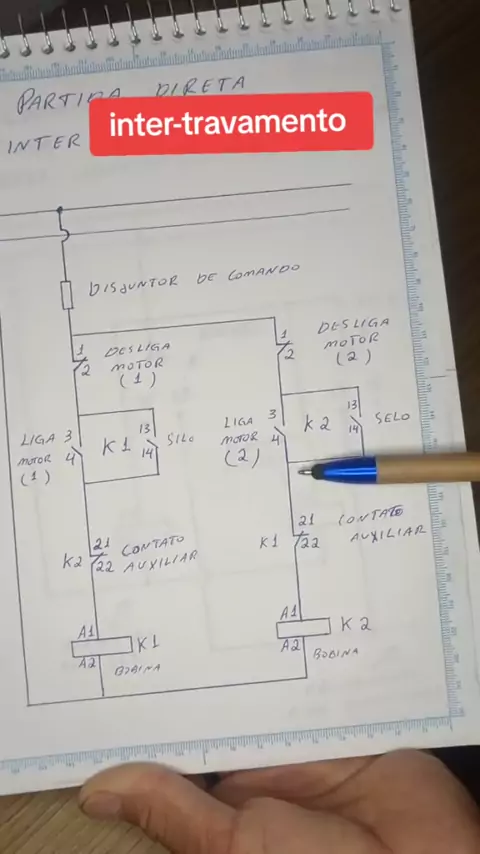 PARTIDA DIRETA
INTER
inter-travamento
DISJUNTOR DE COMANDO
1
2
DESLIGA
MOTOR
(1)
1
2
DESLIGA
MOTOR
(2)
LIGA
MOTOR
(1)
3
4
K1
13
14
SILO
LIGA
MOTOR
(2)
3
4
K2
13
14
SELO
K2
21
22
CONTATO
AUXILIAR
K1
21
22
CONTATO
AUXILIAR
A1
A2
K1
BOBINA
A1
A2
K2
BOBINA